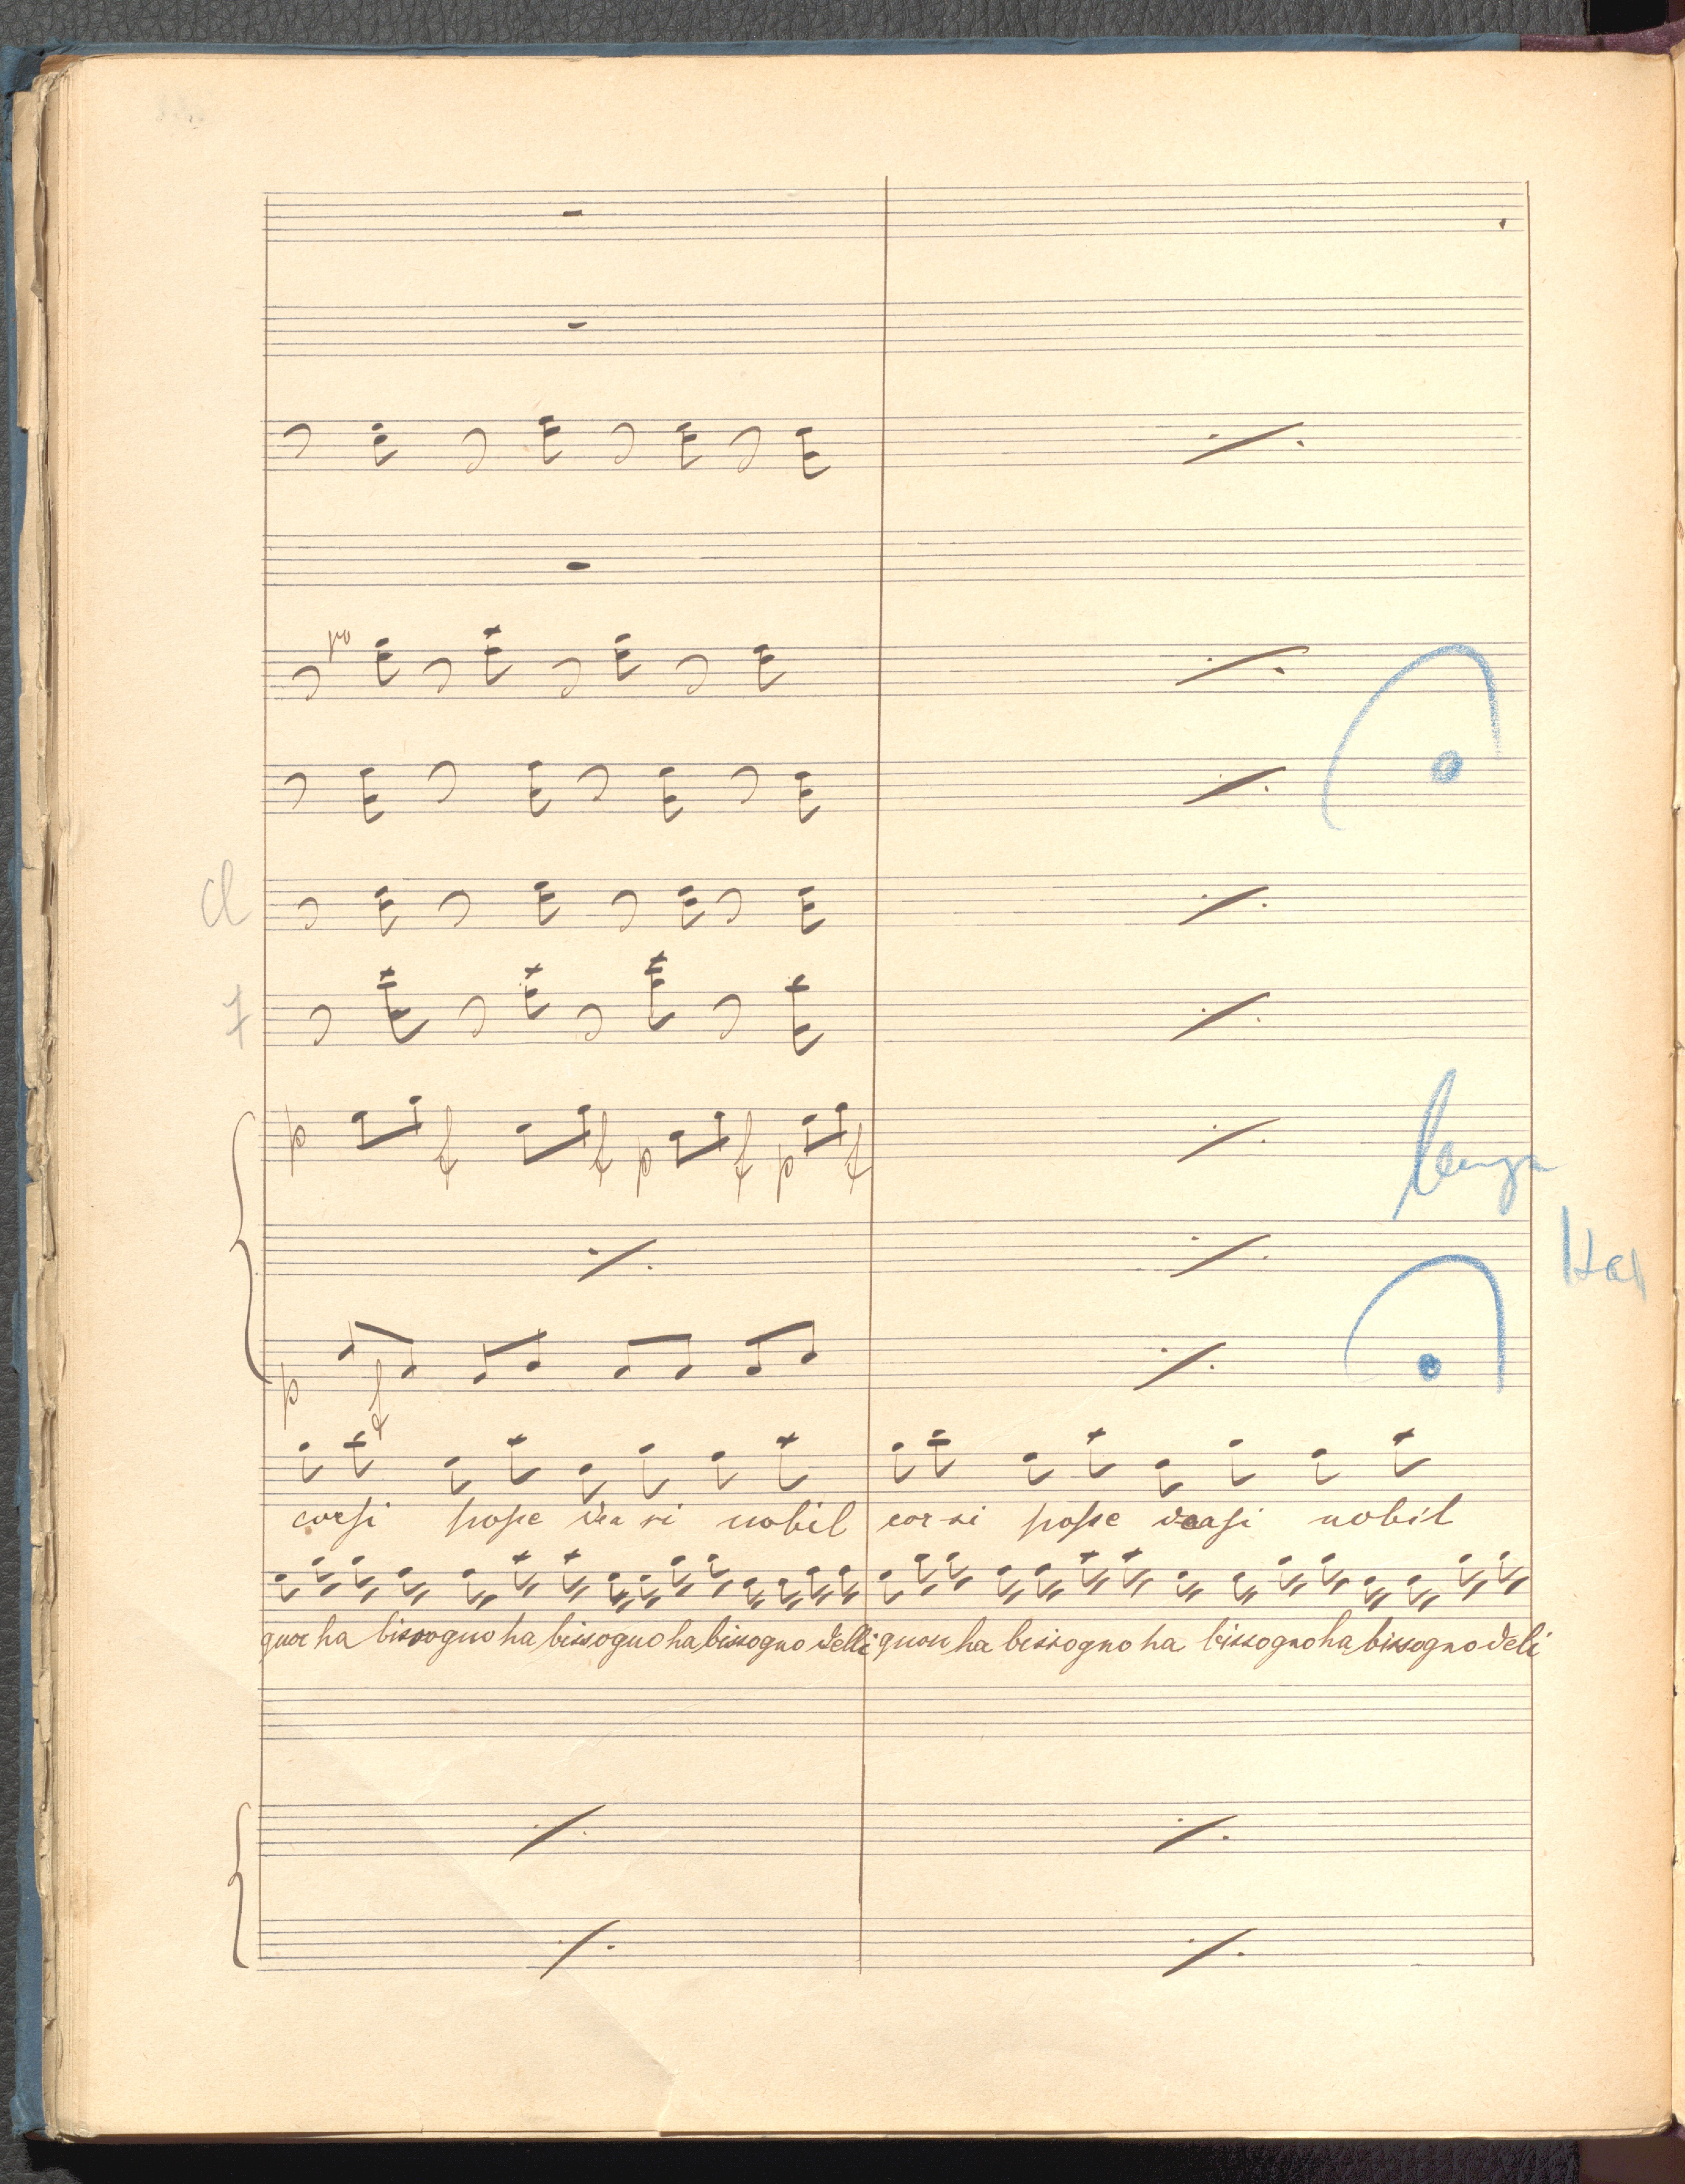 po
cl
f
p f f p f p f
lunga
p f
corsi posse dea si nobil cor si posse deasi nobil
quor ha bissogno ha bissogno ha bissogno delli quou ha bissogno ha bissogno ha bissogno deli